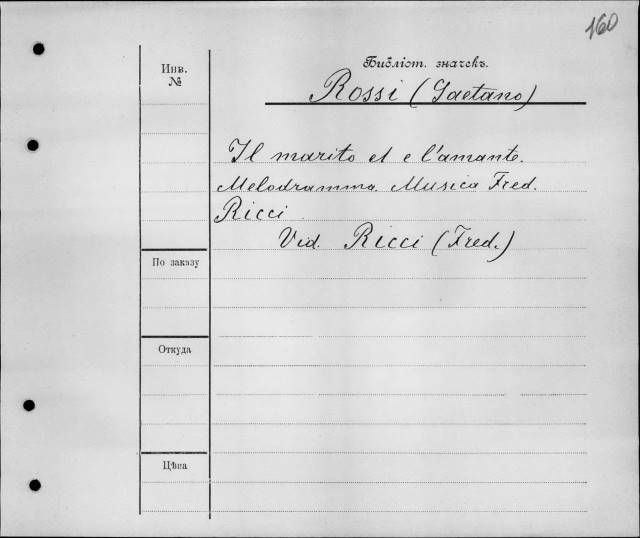 160
Инв.
№
Библіот. значекъ.
Rossi (Gaetano)
Il marito et e l'amante.
Melodramma. Musica Fred.
Ricci.
Vid. Ricci (Fred.)
По заказу
Откуда
Цѣна